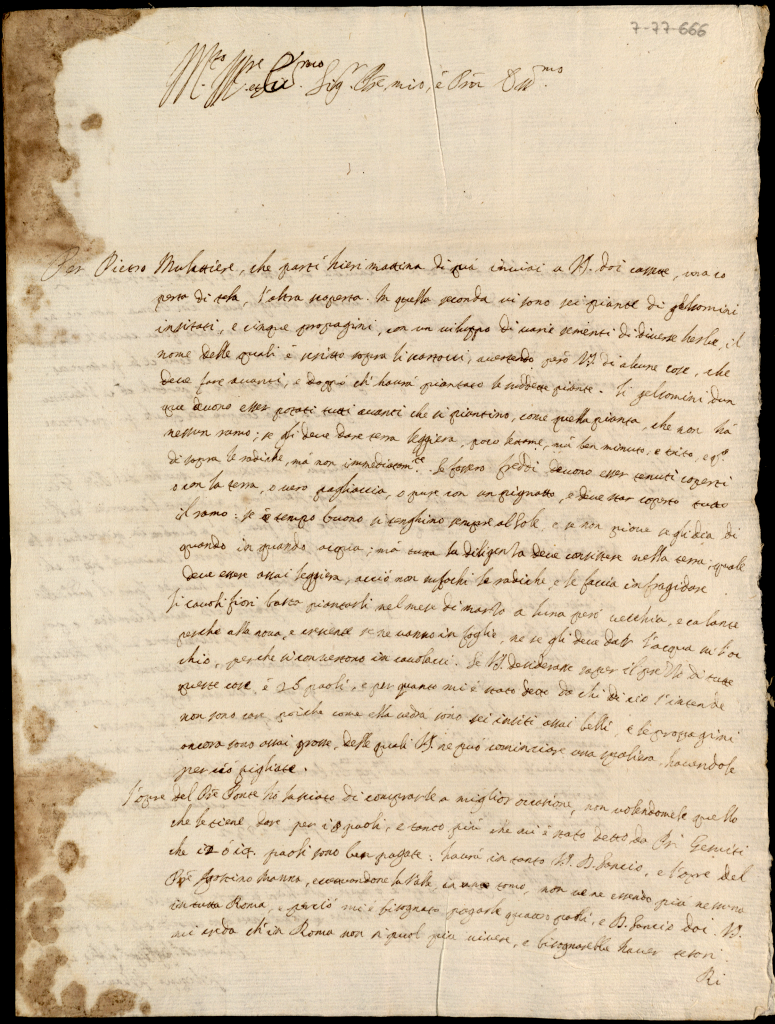 7-77-666
M.to M.re et Ecc.mo Sig.r mio, e Pron Oss.mo
Per Pietro Mulattiere, che partì hieri mattina di quà inviai a V.S. doi cassette, una co
perta di tela, l'altra scoperta. In quella seconda vi sono sei piante di gelsomini
insitati, e cinque propagini, con un viluppo di varie sementi di diverse herbe, il
nome delle quali è scritto sopra li cartocci, avertendo però V.S. di alcune cose, che
deve fare avanti, e doppo ch'haurà piantato le suddette piante. Li gelsomini dun
que devono esser potati tutti avanti che si piantino, come quella pianta, che non hà
nessun ramo; se gli deve dare terra leggiera, poco letame, mà ben minuto, e trito, e
di sopra le radiche, mà non immediatam.te Se fossero freddi devono esser tenuti coperti
o con la terra, o vero pagliaccia, o pure con un pignatto, e deve star coperto tutto
il ramo: se è tempo buono si tenghino sempre al sole, e se non piove se gli dia di
quando in quando acqua; mà tutta la diligenza deve consistere nella terra, quale
deve essere assai leggiera, acciò non suffochi le radiche, e le faccia infragidare.
Li caulifiori basta piantarli nel mese di marzo a luna però vecchia, e calante
perche alla nova, e crescente se ne vanno in foglie, ne se gli deve dar l'acqua su l'oc
chio, perche si convertono in cavolacci. Se V.S. desiderasse saper il prezzo di tutte
queste cose, è 25 paoli, e per quanto mi è stato detto da chi di ciò s'intende
non sono care poiche come ella vedrà sono sei insiti assai belli, e le propagini
ancora sono assai grosse, delle quali V.S. ne può cominciare una spalliera, havendole
per ciò pigliate.
L'opre del P.re Ponte hò lasciato di comprarle a miglior occasione, non volendomele quello
che le tiene dare per 18 paoli, e tanto più che mi è stato detto da Pri Gesuiti
che 12 ò 14 paoli sono ben pagate: haurà in tanto V.S. D. Sancio, e l'opre del
P.re Agostino Manna, in un tomo, non ve ne essendo più nessuno
in tutta Roma, e perciò mi è bisognato pagarle quattro paoli, e D. Sancio doi. V.S.
mi creda ch'in Roma non si puol più vivere, e bisognarebbe haver tesori.
Ri